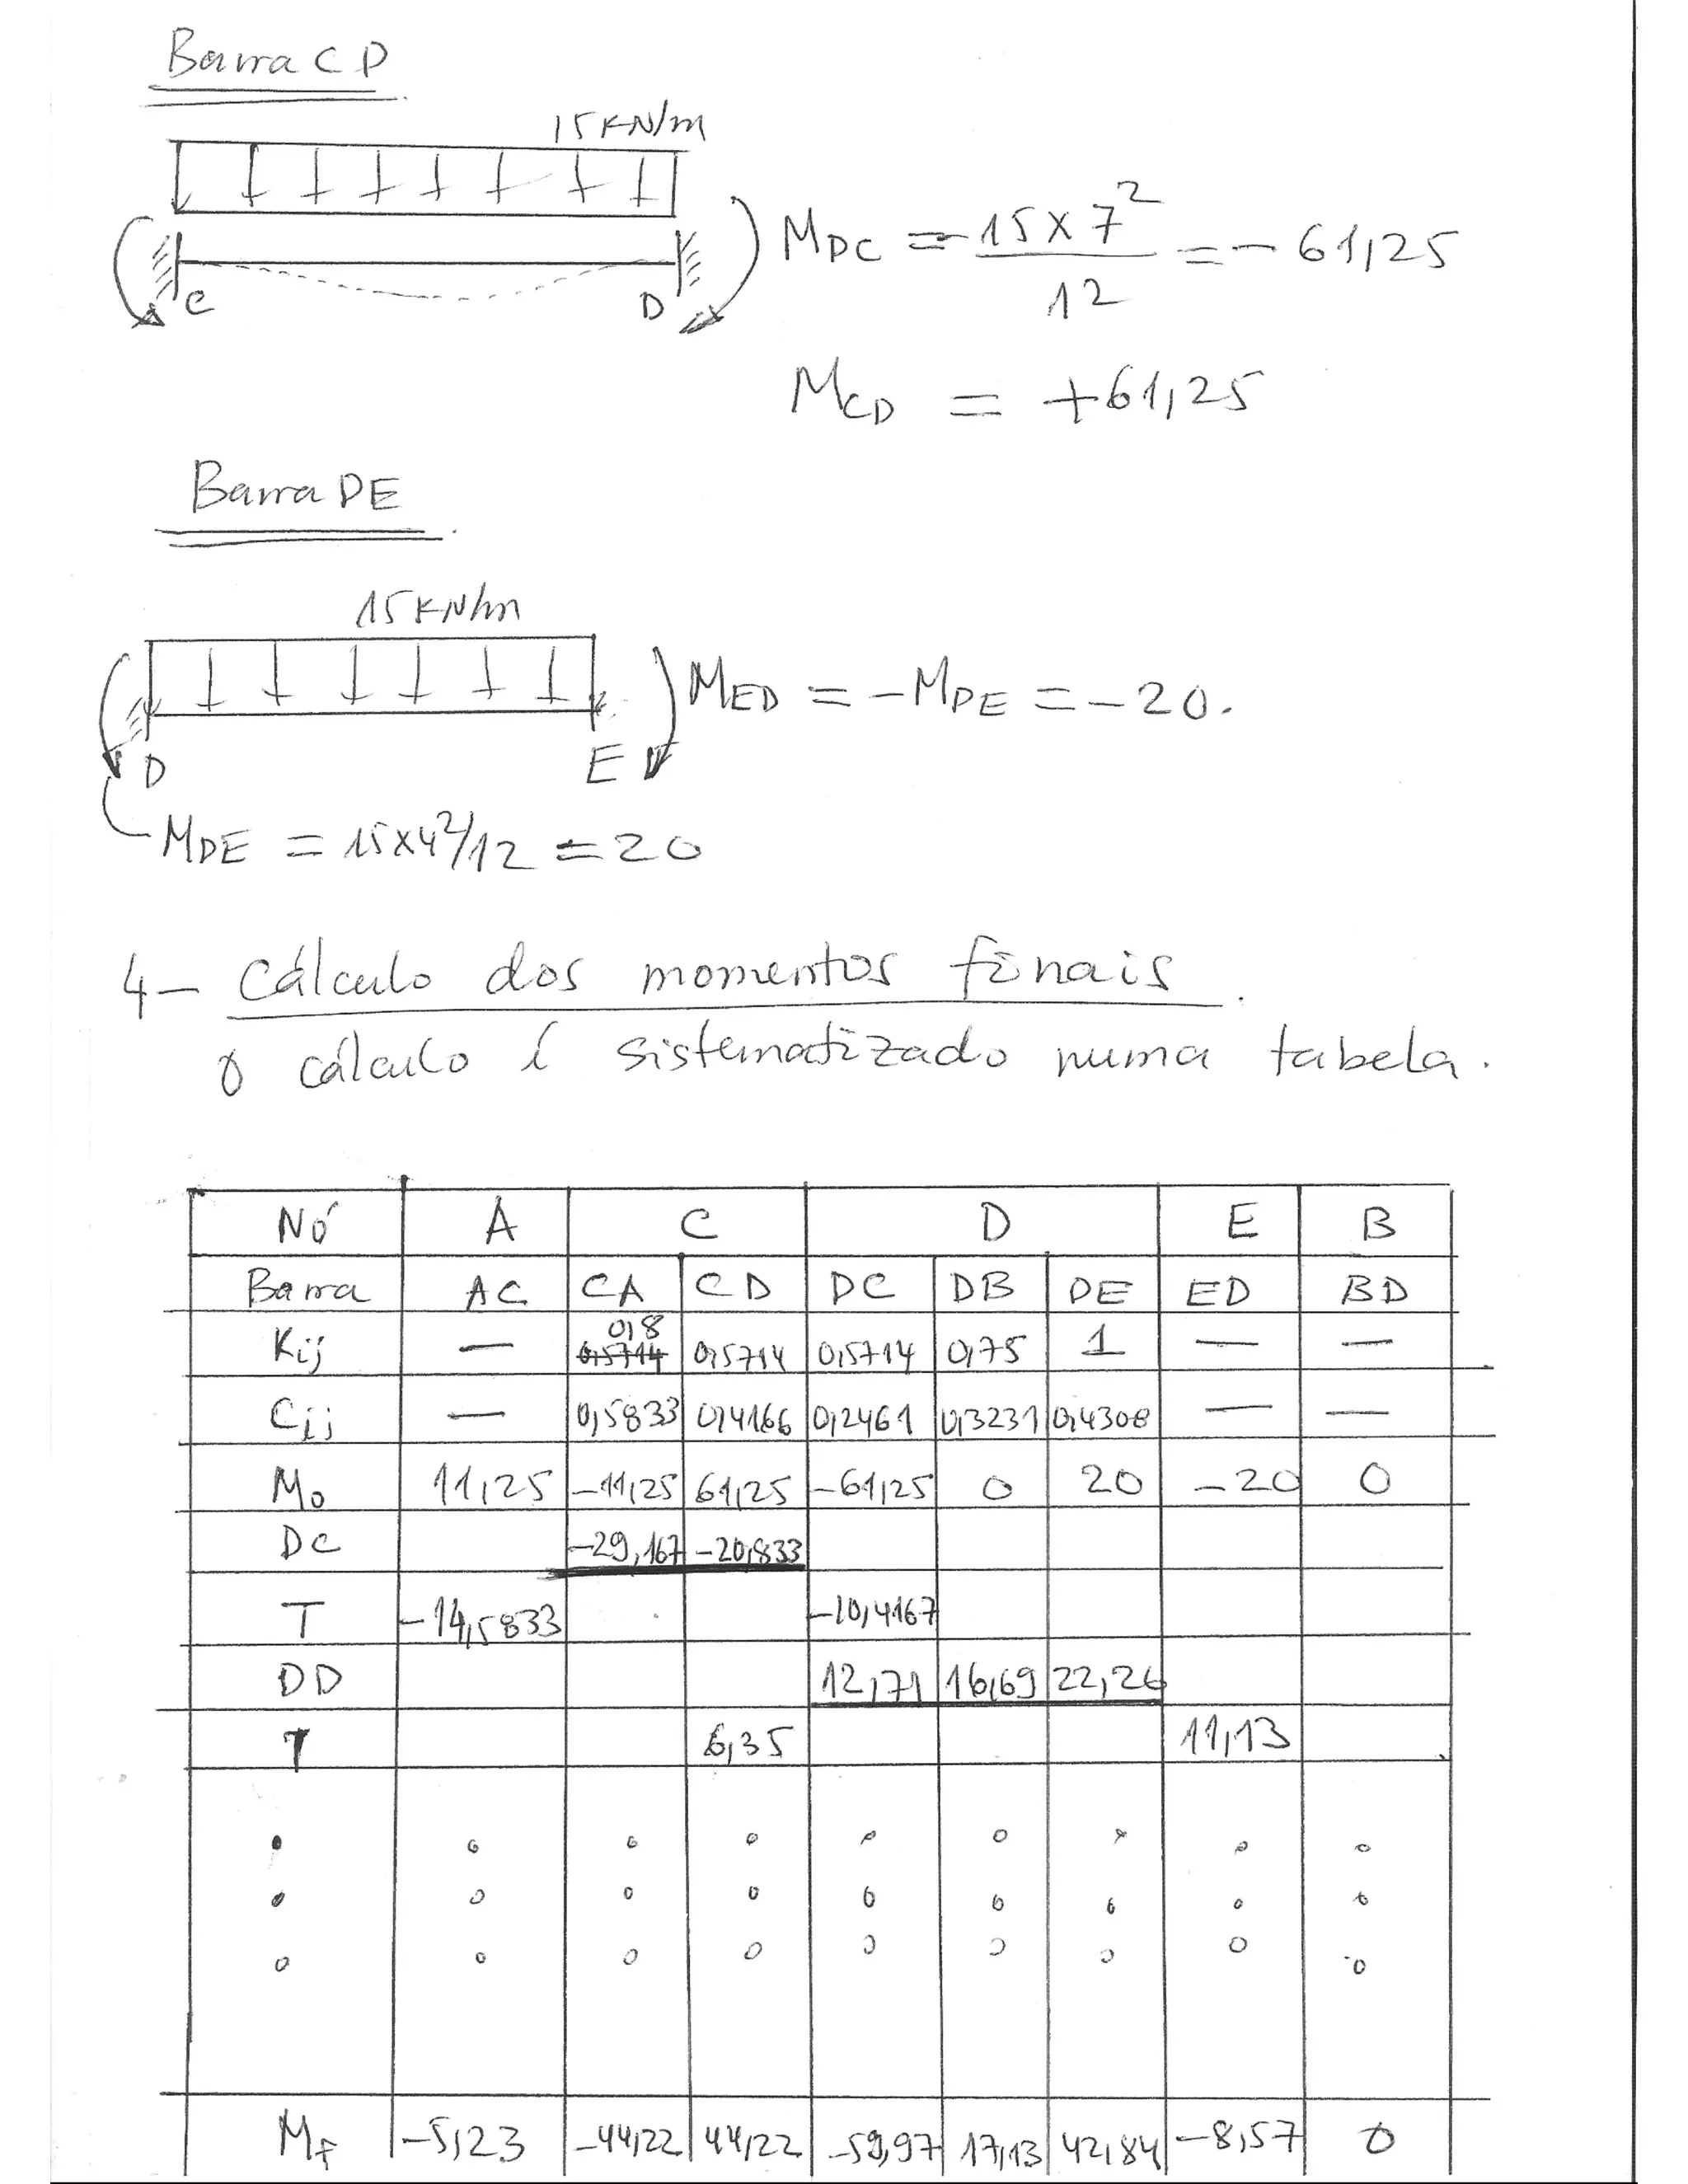 Barra CD
15 KN/m
C D
MDC = -15 x 7² / 12 = - 61,25
MCD = +61,25
Barra DE
15 KN/m
D E
MED = -MDE = -20.
MDE = 15x4²/12 = 20
4- Cálculo dos momentos finais.
O cálculo é sistematizado numa tabela.
Nó A C D E B
Barra AC CA CD DC DB DE ED BD
Kij — 0,8 0,5714 0,5714 0,5714 0,75 1 — —
Cij — 0,5833 0,4166 0,2461 0,3231 0,4308 — —
Mo 11,25 -11,25 61,25 -61,25 0 20 -20 0
DC -29,167 -20,833
T -14,5833 -10,4167
DD 12,71 16,69 22,26
T 6,35 11,13
Mf -5,23 -44,22 44,22 -59,97 17,13 42,84 -8,57 0